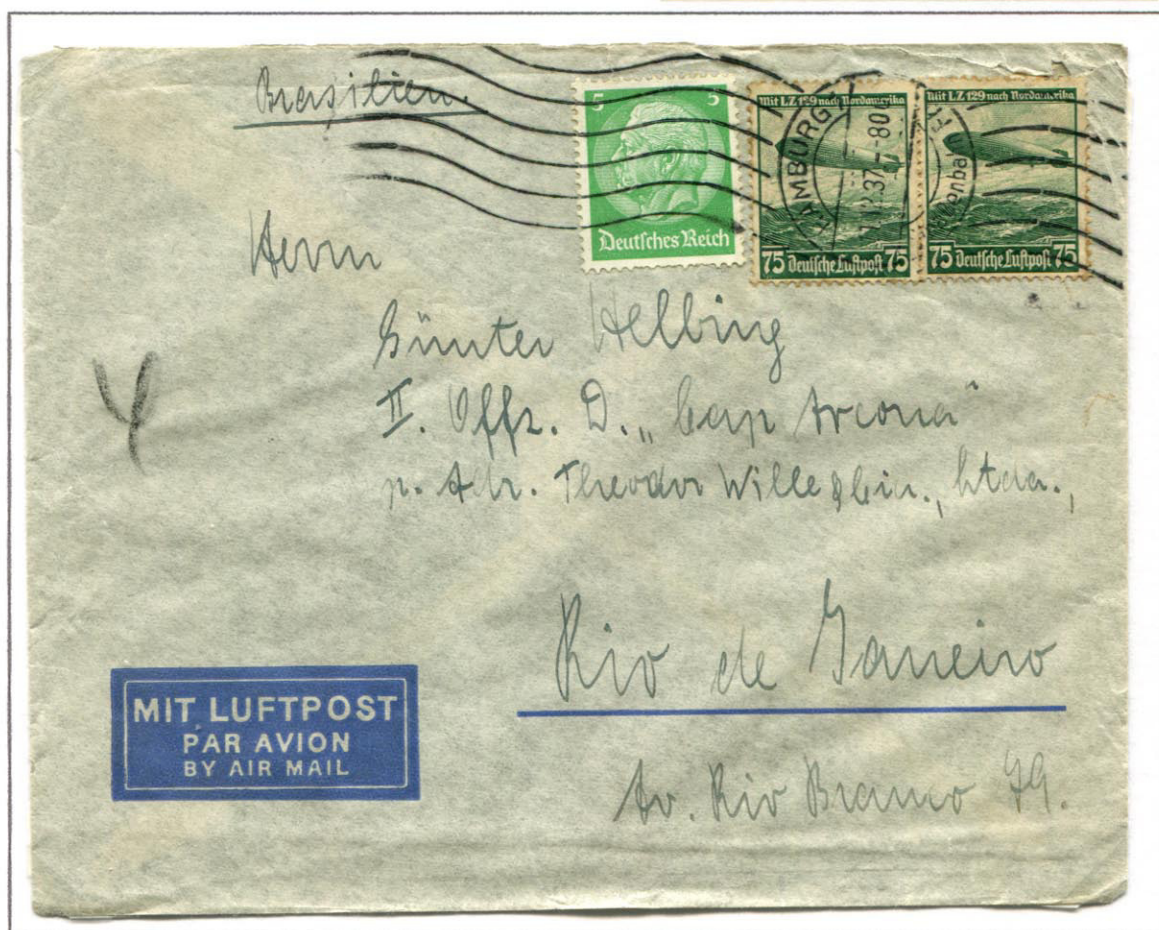 Brasilien.
5 5
Deutsches Reich
Mit LZ 129 nach Nordamerika
75 Deutsche Luftpost 75
Mit LZ 129 nach Nordamerika
75 Deutsche Luftpost 75
HAMBURG
37.-800
Herrn
Günter Helbing
II. Offz. D. „Cap Arcona"
p. Adr. Theodor Wille & Cia., Ltda.,
Rio de Janeiro
Av. Rio Branco 79.
MIT LUFTPOST
PAR AVION
BY AIR MAIL